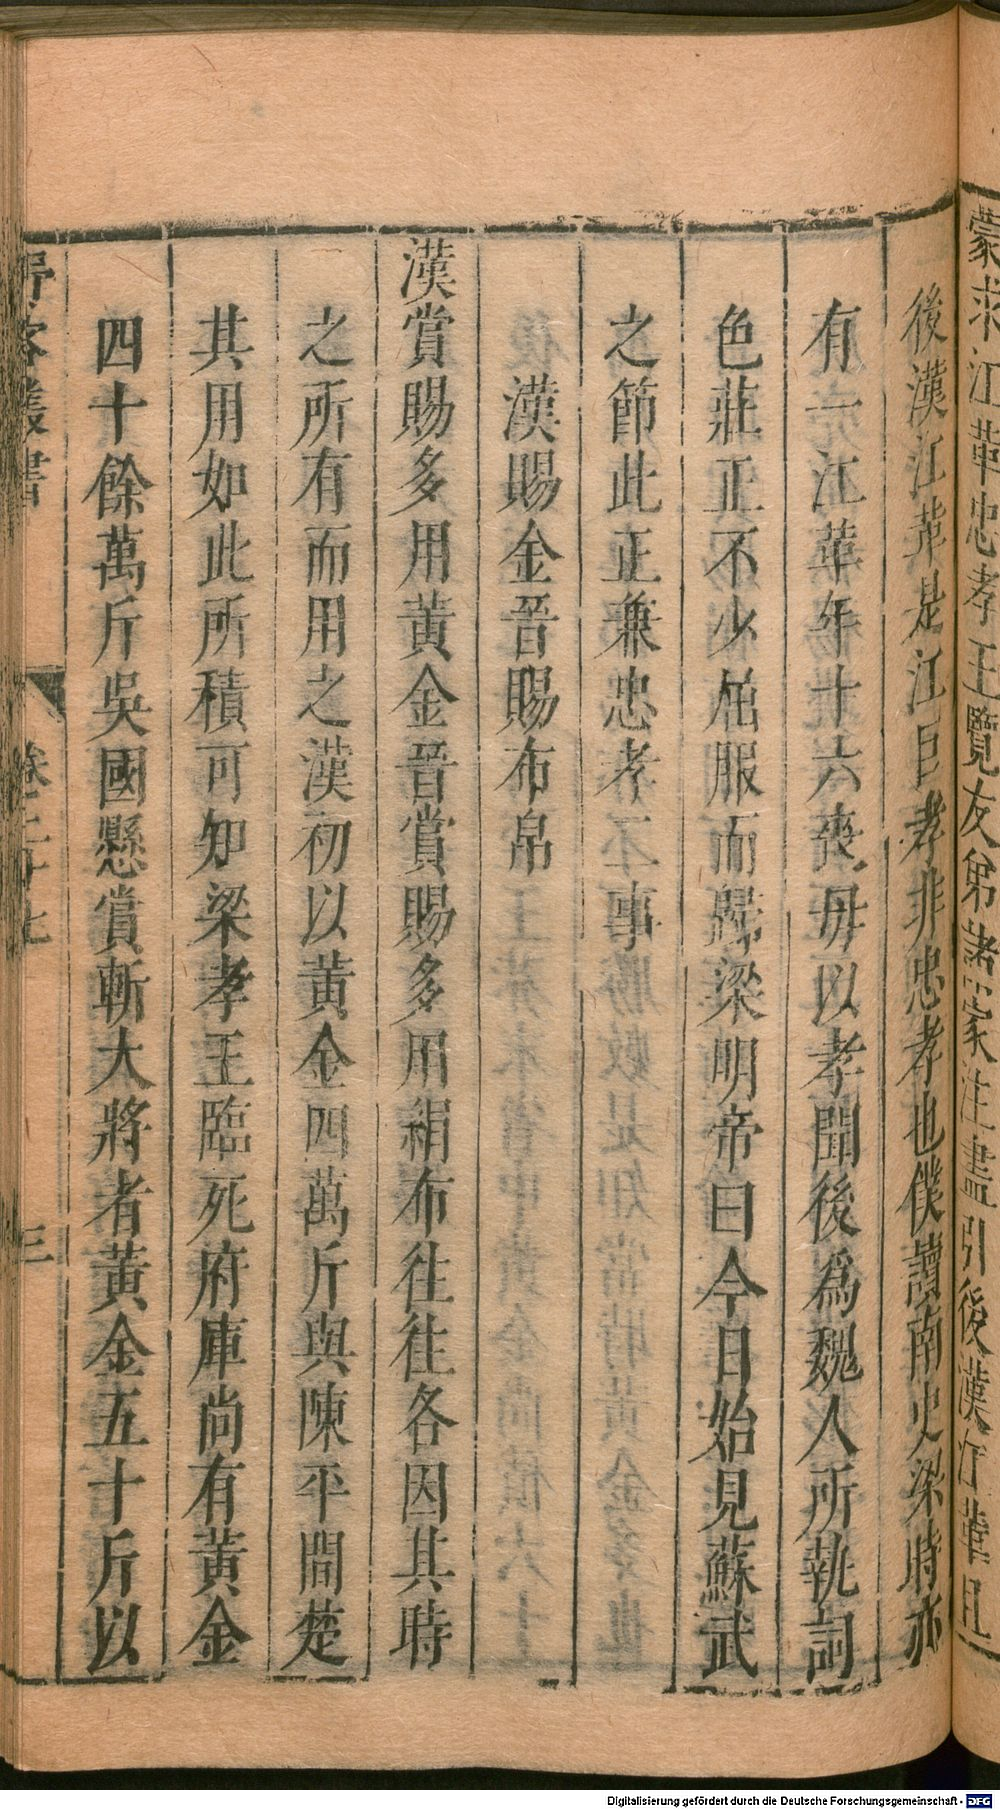 蒙求江革忠孝王覽友弟諸家注盡引後漢江革且
後漢江革是江巨孝非忠孝也僕讀南史梁時亦
有一江革年十六喪母以孝聞後為魏人所執詞
色莊正不少屈服而歸梁明帝曰今日始見蘇武
之節此正兼忠孝事
漢賜金晉賜布帛
漢賞賜多用黃金晉賞賜多用絹布往往各因其時
之所有而用之漢初以黃金四萬斤與陳平間楚
其用如此所積可知梁孝王臨死府庫尚有黃金
四十餘萬斤吳國懸賞斬大將者黃金五十斤以
野客叢書 卷二十七 三
Digitalisierung gefördert durch die Deutsche Forschungsgemeinschaft - DFG